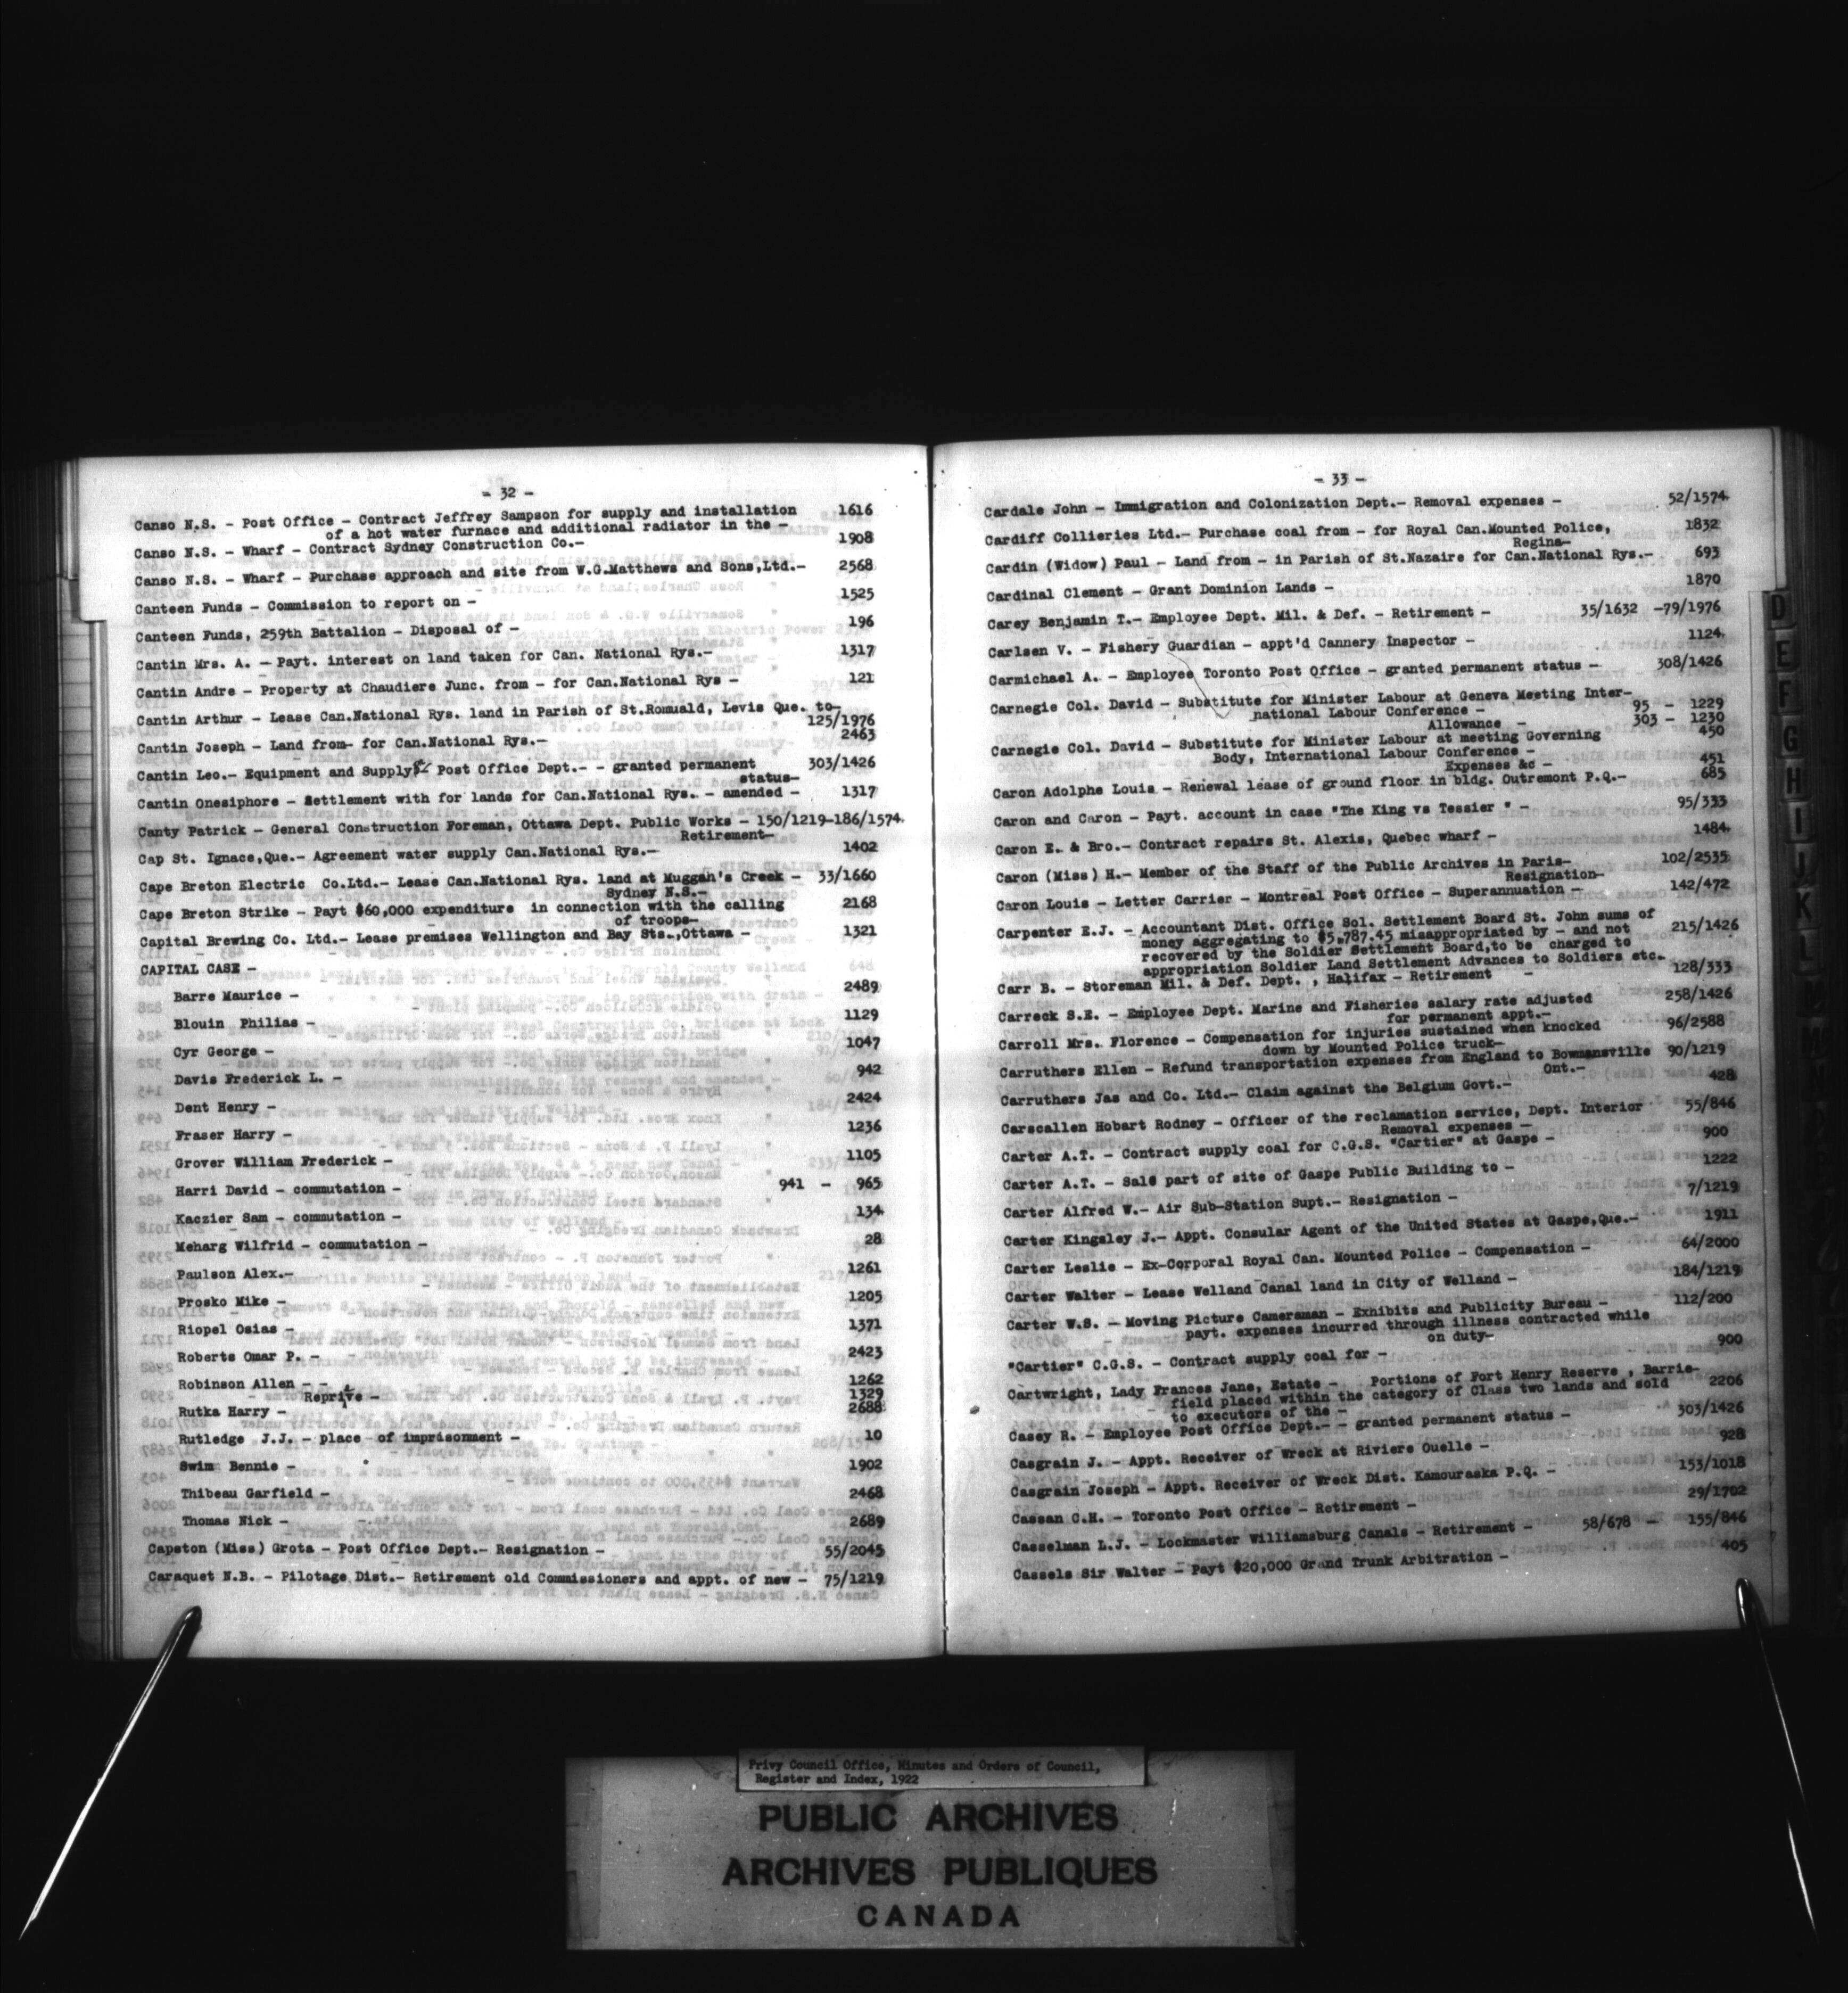 - 32 -
Canso N.S. - Post Office - Contract Jeffrey Sampson for supply and installation 1616
of a hot water furnace and additional radiator in the -
Canso N.S. - Wharf - Contract Sydney Construction Co.- 1908
Canso N.S. - Wharf - Purchase approach and site from W.G.Matthews and Sons,Ltd.- 2568
Canteen Funds - Commission to report on - 1525
Canteen Funds, 259th Battalion - Disposal of - 196
Cantin Mrs. A. - Payt. interest on land taken for Can. National Rys.- 1317
Cantin Andre - Property at Chaudiere Junc. from - for Can.National Rys - 121
Cantin Arthur - Lease Can.National Rys. land in Parish of St.Romuald, Levis Que. to-
125/1976
Cantin Joseph - Land from- for Can.National Rys.- 2463
Cantin Leo.- Equipment and Supply Post Office Dept.- - granted permanent 303/1426
status-
Cantin Onesiphore - Settlement with for lands for Can.National Rys. - amended - 1317
Canty Patrick - General Construction Foreman, Ottawa Dept. Public Works - 150/1219-186/1574
Retirement-
Cap St. Ignace,Que.- Agreement water supply Can.National Rys.- 1402
Cape Breton Electric Co.Ltd.- Lease Can.National Rys. land at Muggah's Creek - 33/1660
Sydney N.S.-
Cape Breton Strike - Payt $60,000 expenditure in connection with the calling 2168
of troops-
Capital Brewing Co. Ltd.- Lease premises Wellington and Bay Sts.,Ottawa - 1321
CAPITAL CASE -
Barre Maurice - 2489
Blouin Philias - 1129
Cyr George - 1047
Davis Frederick L. - 942
Dent Henry - 2424
Fraser Harry - 1236
Grover William Frederick - 1105
Harri David - commutation - 941 - 965
Kaczier Sam - commutation - 134
Meharg Wilfrid - commutation - 28
Paulson Alex.- 1261
Prosko Mike - 1205
Riopel Osias - 1371
Roberts Omar P. - 2423
Robinson Allen - - 1262
Reprive - 1329
Rutka Harry - 2688
Rutledge J.J. - place of imprisonment - 10
Swim Bennie - 1902
Thibeau Garfield - 2468
Thomas Nick - 2689
Capston (Miss) Grota - Post Office Dept.- Resignation - 55/2045
Caraquet N.B. - Pilotage Dist.- Retirement old Commissioners and appt. of new - 75/1219
- 33 -
Cardale John - Immigration and Colonization Dept.- Removal expenses - 52/1574
Cardiff Collieries Ltd.- Purchase coal from - for Royal Can.Mounted Police, 1832
Regina-
Cardin (Widow) Paul - Land from - in Parish of St.Nazaire for Can.National Rys.- 693
Cardinal Clement - Grant Dominion Lands - 1870
Carey Benjamin T.- Employee Dept. Mil. & Def. - Retirement - 35/1632 -79/1976
Carlsen V. - Fishery Guardian - appt'd Cannery Inspector - 1124
Carmichael A. - Employee Toronto Post Office - granted permanent status - 308/1426
Carnegie Col. David - Substitute for Minister Labour at Geneva Meeting Inter- 95 - 1229
national Labour Conference - 303 - 1230
Allowance -
Carnegie Col. David - Substitute for Minister Labour at meeting Governing 450
Body, International Labour Conference -
Expenses &c - 451
Caron Adolphe Louis - Renewal lease of ground floor in bldg. Outremont P.Q.- 685
Caron and Caron - Payt. account in case "The King vs Tessier " - 95/333
Caron E. & Bro.- Contract repairs St. Alexis, Quebec wharf - 1484
Caron (Miss) H.- Member of the Staff of the Public Archives in Paris- 102/2535
Resignation-
Caron Louis - Letter Carrier - Montreal Post Office - Superannuation - 142/472
Carpenter E.J. - Accountant Dist. Office Sol. Settlement Board St. John sums of 215/1426
money aggregating to $5,787.45 misappropriated by - and not
recovered by the Soldier Settlement Board,to be charged to
appropriation Soldier Land Settlement Advances to Soldiers etc.-
Carr B. - Storeman Mil. & Def. Dept. , Halifax - Retirement - 128/333
Carreck S.E. - Employee Dept. Marine and Fisheries salary rate adjusted 258/1426
for permanent appt.-
Carroll Mrs. Florence - Compensation for injuries sustained when knocked 96/2588
down by Mounted Police truck-
Carruthers Ellen - Refund transportation expenses from England to Bowmansville 90/1219
Ont.-
Carruthers Jas and Co. Ltd.- Claim against the Belgium Govt.- 428
Carscallen Hobart Rodney - Officer of the reclamation service, Dept. Interior 55/846
Removal expenses -
Carter A.T. - Contract supply coal for C.G.S. "Cartier" at Gaspe - 900
Carter A.T. - Sale part of site of Gaspe Public Building to - 1222
Carter Alfred W.- Air Sub-Station Supt.- Resignation - 7/1219
Carter Kingsley J.- Appt. Consular Agent of the United States at Gaspe,Que.- 1911
Carter Leslie - Ex-Corporal Royal Can. Mounted Police - Compensation - 64/2000
Carter Walter - Lease Welland Canal land in City of Welland - 184/1219
Carter W.S. - Moving Picture Cameraman - Exhibits and Publicity Bureau - 112/200
payt. expenses incurred through illness contracted while
on duty-
"Cartier" C.G.S. - Contract supply coal for - 900
Cartwright, Lady Frances Jane, Estate - Portions of Fort Henry Reserve , Barrie- 2206
field placed within the category of Class two lands and sold
to executors of the -
Casey R. - Employee Post Office Dept.- - granted permanent status - 303/1426
Casgrain J. - Appt. Receiver of Wreck at Riviere Ouelle - 928
Casgrain Joseph - Appt. Receiver of Wreck Dist. Kamouraska P.Q. - 153/1018
Cassan C.H. - Toronto Post Office - Retirement - 29/1702
Casselman L.J. - Lockmaster Williamsburg Canals - Retirement - 58/678 - 155/846
Cassels Sir Walter - Payt $20,000 Grand Trunk Arbitration - 405
D
E
F
G
H
I
J
K
Privy Council Office, Minutes and Orders of Council,
Register and Index, 1922
PUBLIC ARCHIVES
ARCHIVES PUBLIQUES
CANADA